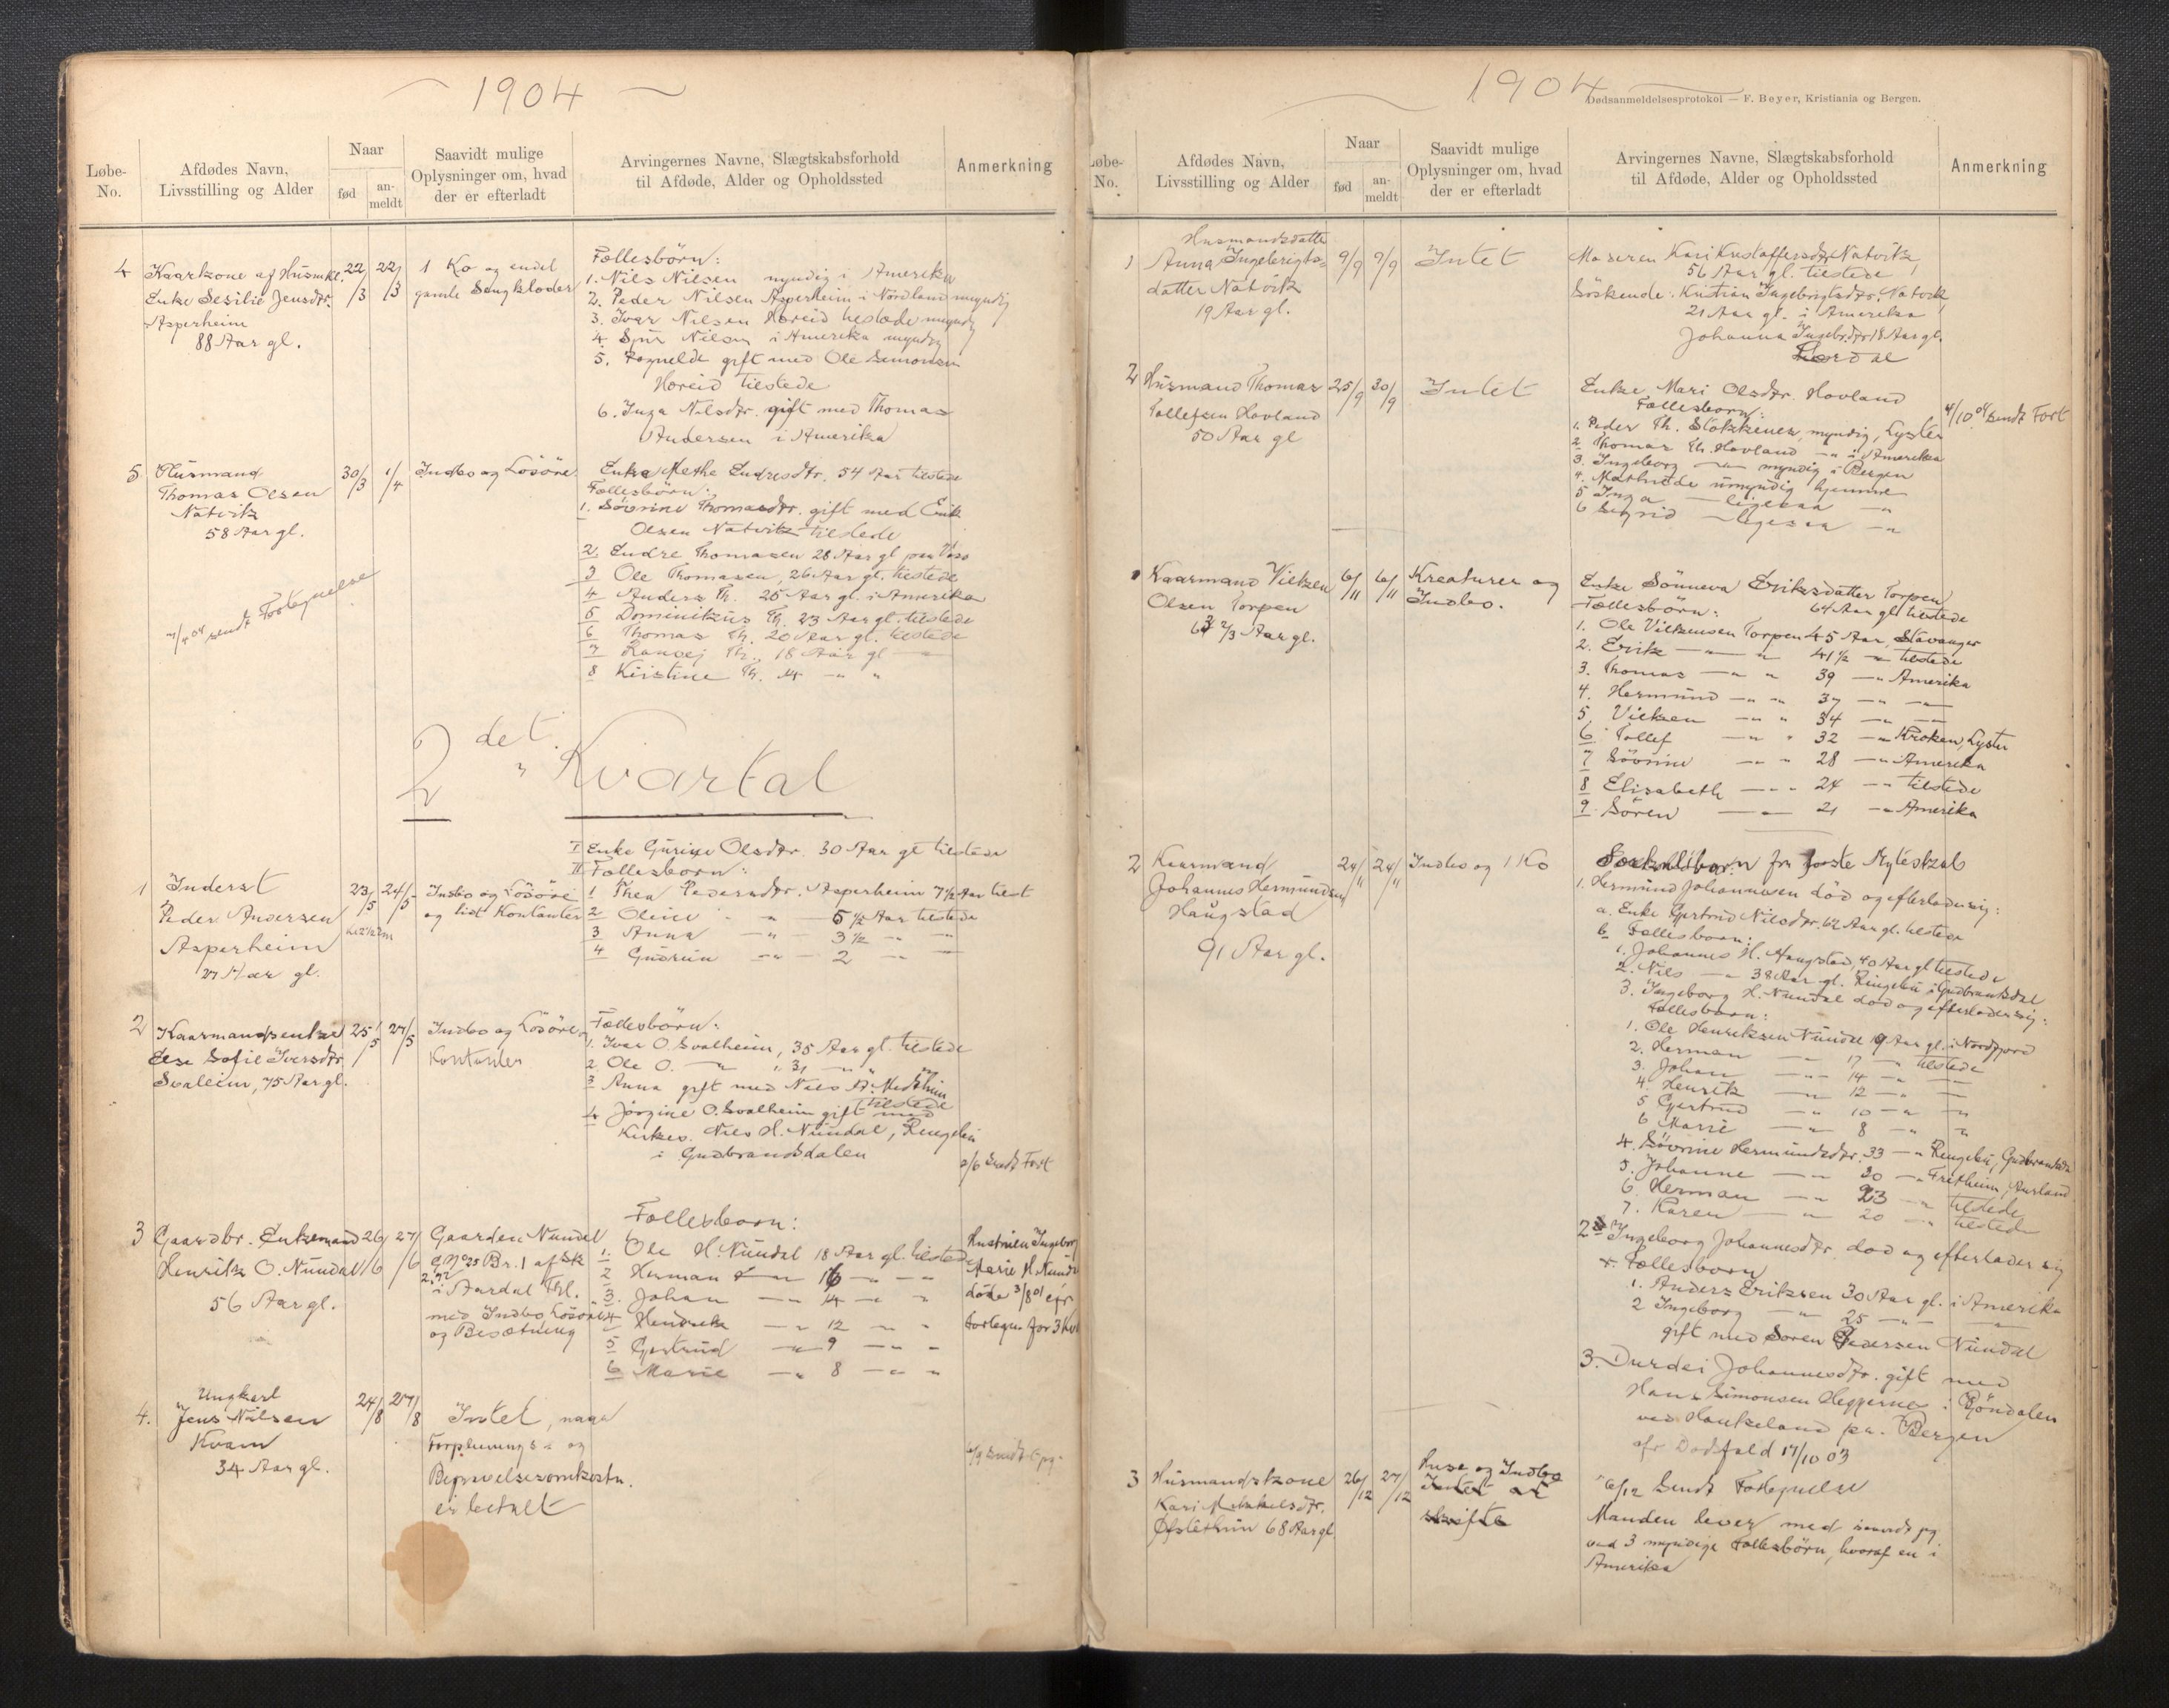 1904
Løbe-No.
Afdødes Navn, Livsstilling og Alder
Naar
fød
an-meldt
Saavidt mulige Oplysninger om, hvad der er efterladt
Arvingernes Navne, Slægtskabsforhold til Afdøde, Alder og Opholdssted
Anmerkning
4
Kaarkone af Husmkl.
Enke Sesilie Jensdtr.
Asperheim
88 Aar gl.
22/3
22/3
1 Ko og endel
gamle Sengklæder
Fællesbörn:
1. Nils Nilsen myndig i Amerika
2. Peder Nilsen Asperheim i Nordland myndig
3. Ivar Nilsen Horeid tilstede myndig
4. Sjur Nilsen i Amerika myndig
5. Rognelde gift med Ole Simonsen
Horeid tilstede
6. Inga Nilsdtr. gift med Thomas
Andersen i Amerika
5
Husmand
Thomas Olsen
Natvik
58 Aar gl.
30/3
1/4
Indbo og Lösöre
04 sendt Fortegnelse
Enke Methe Endresdtr. 54 Aar tilstede
Fællesbörn:
1. Sövrine Thomasdtr. gift med Erik
Olsen Natvik tilstede
2. Endre Thomasen 28 Aar gl paa Voss
3 Ole Thomasen, 26 Aar gl. tilstede
4 Anders Th. 25 Aar gl. i Amerika
5 Dominikus Th. 23 Aar gl. tilstede
6 Thomas Th. 20 Aar gl. tilstede
7 Ranvej Th. 18 Aar gl —"—
8 Kristine Th. 14 —" "
2det Kvartal
1
Inderst
Peder Andersen
Asperheim
27 Aar gl.
23/5
24/5
Indbo og Lösöre
og lidt Kontanter
I Enke Gurine Olsdtr. 30 Aar gl tilstede
II Fællesbörn:
1 Thea Pedersdtr. Asperheim 7½ Aar tilst
2 Oline " " 5½ Aar tilstede
3 Anna —"— 3½ —" —
4 Gudrun —"— 2 —" —
2
Kaarmandsenke
Else Sofie Iversdtr
Svalheim, 75 Aar gl.
25/5
27/5
Indbo og Lösöre
Kontanter
Fællesbörn:
1. Ivar O. Svalheim, 35 Aar gl. tilstede
2 Ole O. —"— " 31 —" "
3 Anna gift med Nils A. Midthun
tilstede
4 Jörgine O. Svalheim gift med
Kirkes. Nils H. Nundal, Ringebu
i Gudbrandsdalen
2/6 sendt Fort
3
Gaardbr. Enkemand
Henrik O. Nundal
56 Aar gl.
26/6
27/6
Gaarden Nundal
G No 25 Br. 1 af Sk
i Aardal Thl.
med Indbo Lösöre
og Besætning
Fællesborn:
1. Ole H. Nundal 18 Aar gl. tilstede
2 Herman —"— 16 —" —
3. Johan —"— 14 —" "
4 Henrik —"— 12 —" "
5 Gertrud —"— 9 —" "
6 Marie —"— 8 —" "
Hustruen Ingeborg
Marie H. Nundal
döde 3/8 01 cfr
fortegn. for 3 Kvt
4.
Ungkarl
Jens Nilsen
Kvam
34 Aar gl.
24/8
27/8
Intet, naar
Forpleinings- og
Begravelsesomkostn.
er betalt
1904
Dødsanmeldelsesprotokol — F. Beyer, Kristiania og Bergen.
Løbe-No.
Afdødes Navn, Livsstilling og Alder
Naar
fød
an-meldt
Saavidt mulige Oplysninger om, hvad der er efterladt
Arvingernes Navne, Slægtskabsforhold til Afdøde, Alder og Opholdssted
Anmerkning
1
Husmandsdatter
Anna Ingebrigts-
datter Natvik
19 Aar gl.
9/9
9/9
Intet
Moderen Kari Kristoffersdtr Natvik
56 Aar gl. tilstede
Söskende: Kristian Ingebrigtsdtr. Natvik
21 Aar gl. i Amerika
Johanna Ingebr.dtr 18 Aar gl.
2
Husmand Thomas
Tollefsen Hovland
50 Aar gl
25/9
30/9
Intet
Enke Mari Olsdtr. Hovland
Fællesborn:
1. Peder Th. Stokkenes, myndig, Lyster
2 Thomas Th. Hovland —"— i Amerika
3. Ingeborg —"— myndig i Bergen
4. Mathilde umyndig hjemme
5 Inga — ligesaa —"
6 Sigrid — ligesaa —"
4/10 04 sendt Fort
1
Kaarmand Vilken
Olsen Torpen
63 2/3 Aar gl.
6/11
6/11
Kreaturer og
Indbo.
Enke Sönneva Eriksdatter Torpen
64 Aar gl tilstede
Fællesbörn:
1. Ole Vilkensen Torpen 45 Aar, Stavanger
2. Erik —"— " 41½ —" tilstede
3. Thomas —" " 39 —" Amerika
4. Hermund —" " 37 —" —"—
5. Vilken —" " 34 —" —"—
6 Tollef —" " 32 —" Kroken, Lyster
7 Sövrine —" " 28 —" Amerika
8 Elisabeth —" " 24 —" tilstede
9 Sören —"— 21 —" Amerika
2
Kaarmand
Johannes Hermundsen
Haugstad
91 Aar gl.
24/11
24/11
Indbo og 1 Ko
fra förste Ægteskab
1. Hermund Johannesen död og efterlader sig:
a. Enke Gertrud Nilsdtr. 62 Aar gl. tilstede
b Fællesborn:
1. Johannes H. Haugstad, 40 Aar gl tilstede
2. Nils —" 38 Aar gl. Ringebu i Gudbrandsdal
3. Ingeborg H. Nundal död og efterlader sig:
Fællesborn:
1. Ole Henriksen Nundal 19 Aar gl. i Nordfjord
2. Herman —"— 17 —" tilstede
3. Johan —"— 14 —" —"
4. Henrik —"— 12 —" —"
5 Gjertrud —" 10 —" —"
6 Marie —" 8 —" "
4. Sövrine Hermundsdtr. 33 —" Ringebu, Gudbrandsda
5. Johanne —"— 30 —" Fretheim, Aurland
6. Herman —"— 23 —" tilstede
7. Karen —"— 20 —" tilstede
2. Ingeborg Johannesdtr. död og efterlader sig
Fællesborn
1. Anders Eriksen 30 Aar gl. i Amerika
2 Ingeborg —"— 25 —"—
gift med Sören Pedersen Nundal
3. Durdei Johannesdtr. gift med
Hans Simonsen Heggernes i Göndalen
ved Haukeland pr. Bergen
cfr Dödsfald 17/10 03
3
Husmandskone
Kari Mikkelsdtr.
Ofstethun 68 Aar gl
26/12
27/12
Huse og Indbo
Intet at
skifte
6/12 Sendt Fortegnelse
Manden lever med
ved 3 myndige Fællesbörn, hvoraf en i
Amerika